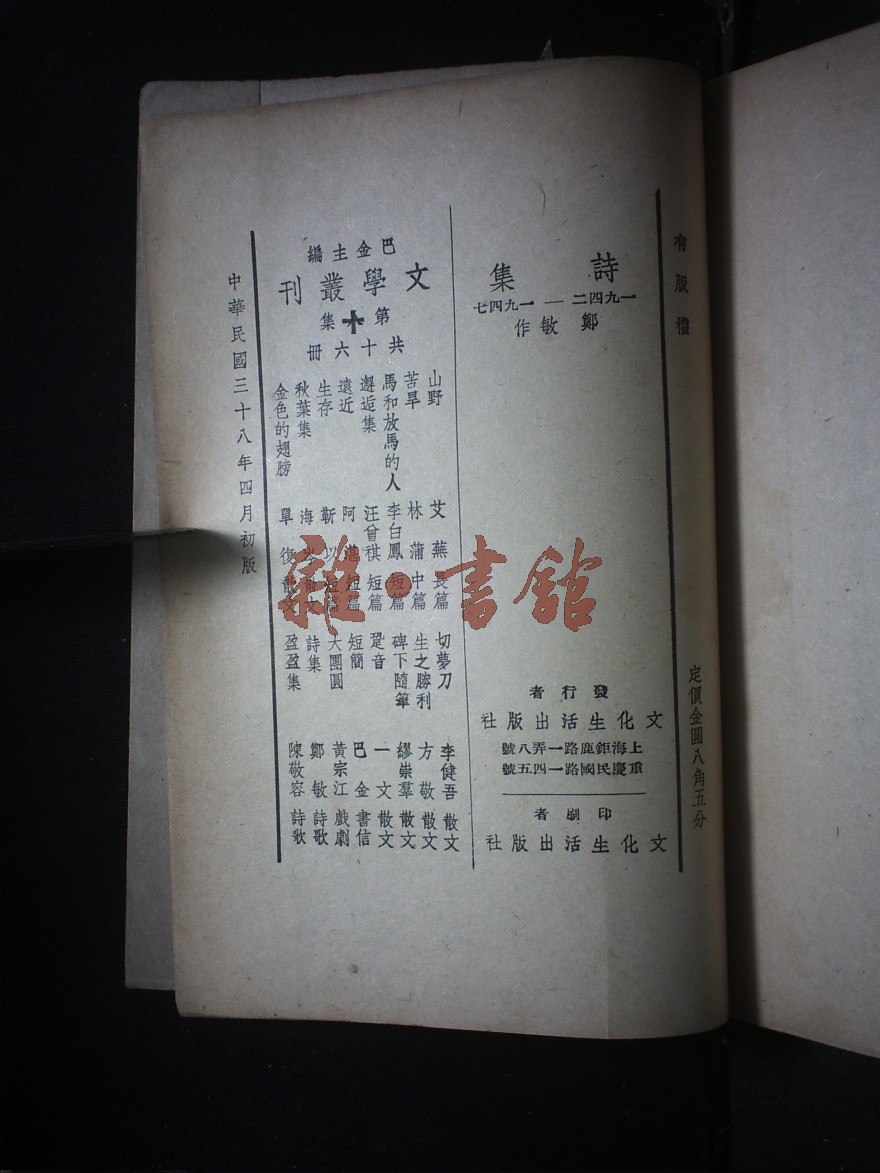 有版權
定價金圓八角五分
詩集
一九四二——一九四七
鄭敏作
發行者
文化生活出版社
上海鉅鹿路一弄八號
重慶民國路一四五號
印刷者
文化生活出版社
巴金主編
文學叢刊
第十集
共十六冊
山野 艾蕪 長篇
苦旱 林蒲 中篇
馬和放馬的人 李白鳳 短篇
邂逅集 汪曾祺 短篇
遠近 阿湛 短篇
生存 靳以 短篇
秋葉集 海岑 散文
金色的翅膀 單復 散文
切夢刀 李健吾 散文
生之勝利 方敬 散文
碑下隨筆 繆崇羣 散文
跫音 一文 散文
短簡 巴金 書信
大團圓 黃宗江 戲劇
詩集 鄭敏 詩歌
盈盈集 陳敬容 詩歌
中華民國三十八年四月初版
雜·書館